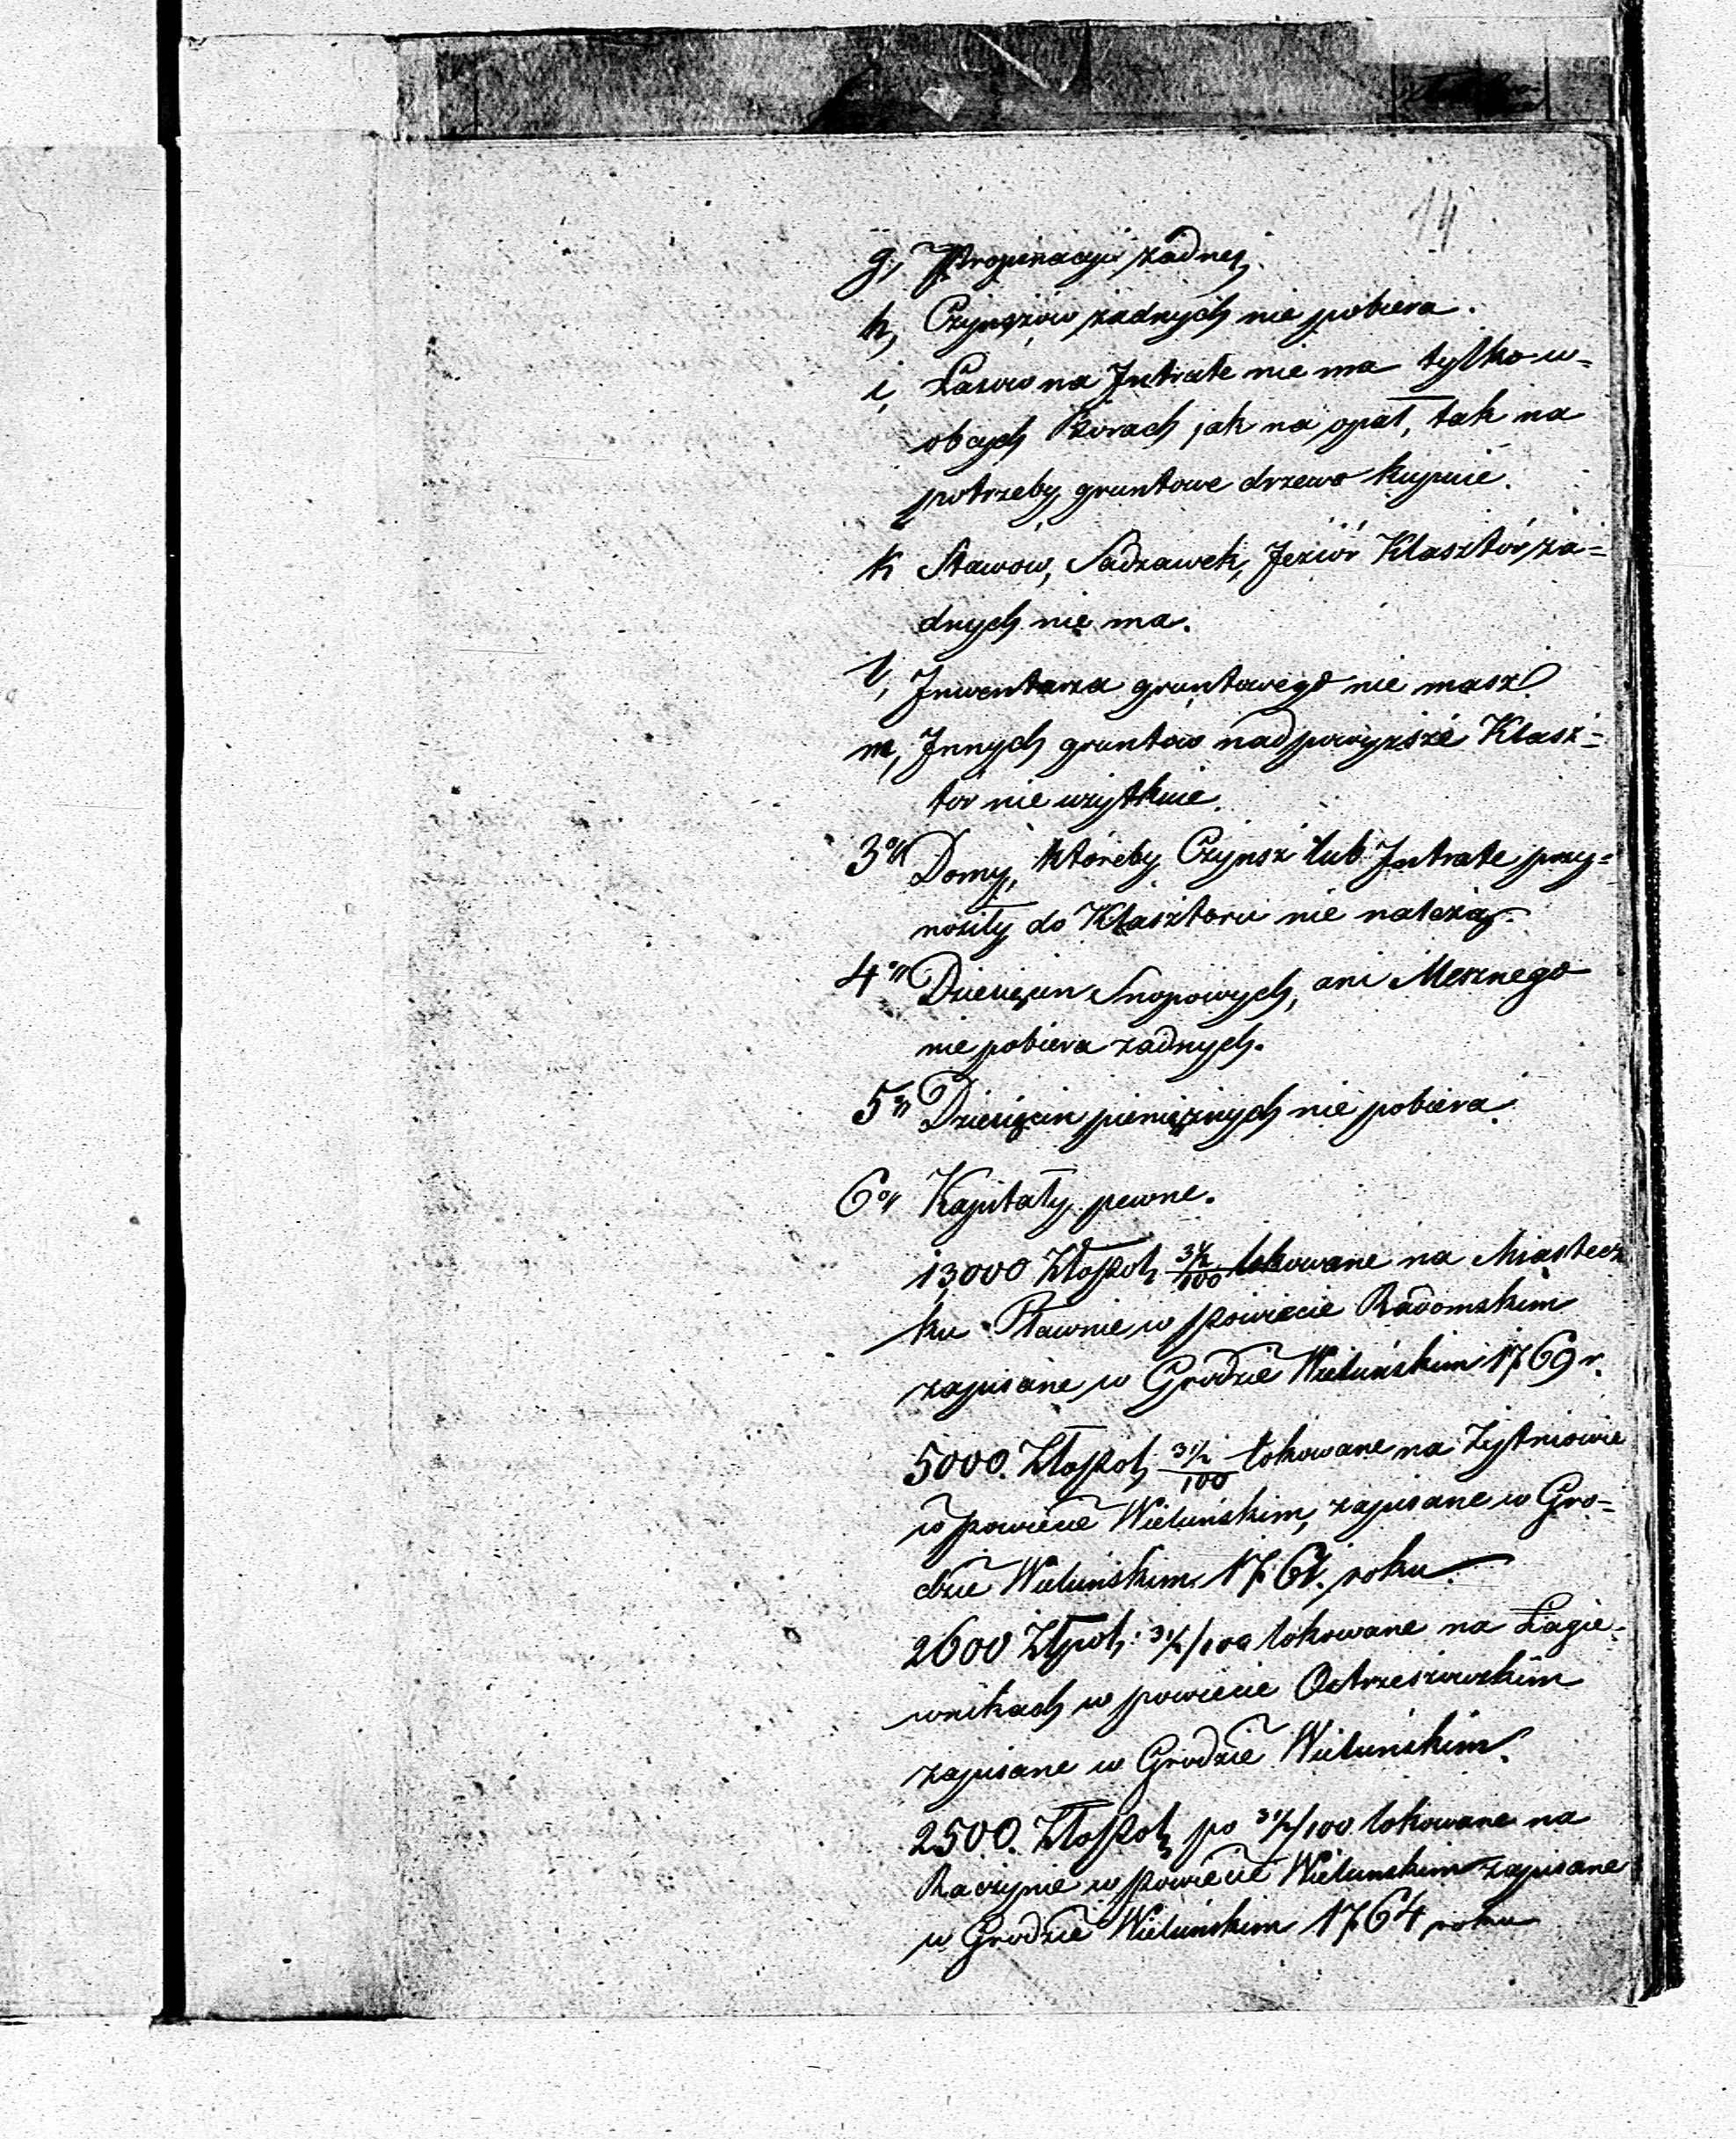 14
g, Propinacyi żadnej.
h, Czynszów żadnych nie pobiera.
i, Lasów na Intratę nie ma tylko w-
obcych Borach jak na opał, tak na
potrzeby gruntowe drzewo kupuie.
k Stawów, Sadzawek, Jeziór Klasztór ża=
dnych nie ma.
l, Inwentarza gruntowego nie masz.
m, Innych gruntów nad powyższe Klasz=
tor nie użytkuie.
3o// Domy, któreby Czynsz lub Intratę przy=
nosiły do Klasztoru nie należą.
4o// Dziesięcin Snopowych, ani Mesznego
nie pobiera żadnych.
5o// Dziesięcin pieniężnych nie pobiera.
6o// Kapitały pewne.
13,000 Złopol, 3½/100 lokowane na Miastecz
ku Pławnie w powiecie Radomskim
zapisane w Grodzie Wieluńskim 1769 r.
5000. Złopol, 3½/100 lokowane na Żytniowie
w powiecie Wieluńskim, zapisane w Gro=
dzie Wieluńskim 1761. roku.
2600 Złpol: 3½/100 lokowane na Łagie-
wnikach w powiecie Ostrzeszowskim
zapisane w Grodzie Wieluńskim.
2500. Złopol, po 3½/100 lokowane na
Raczynie w powiecie Wieluńskim zapisane
w Grodzie Wieluńskim 1764 roku